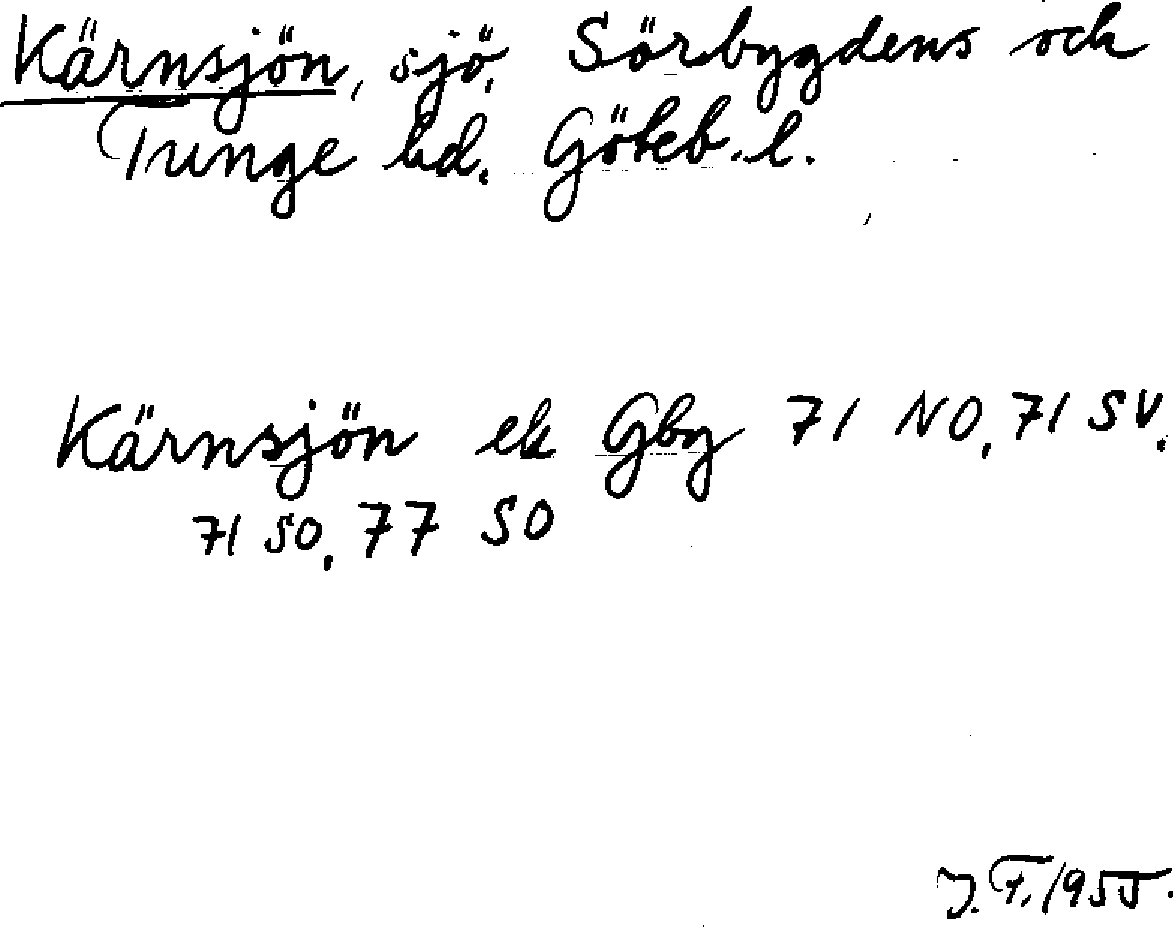 Kärnsjön, sjö, Sörbygdens och
Tunge hd. Göteb. l.
Kärnsjön ek Gbg 71 NO, 71 SV,
71 SO, 77 SO
J. F. 1955.